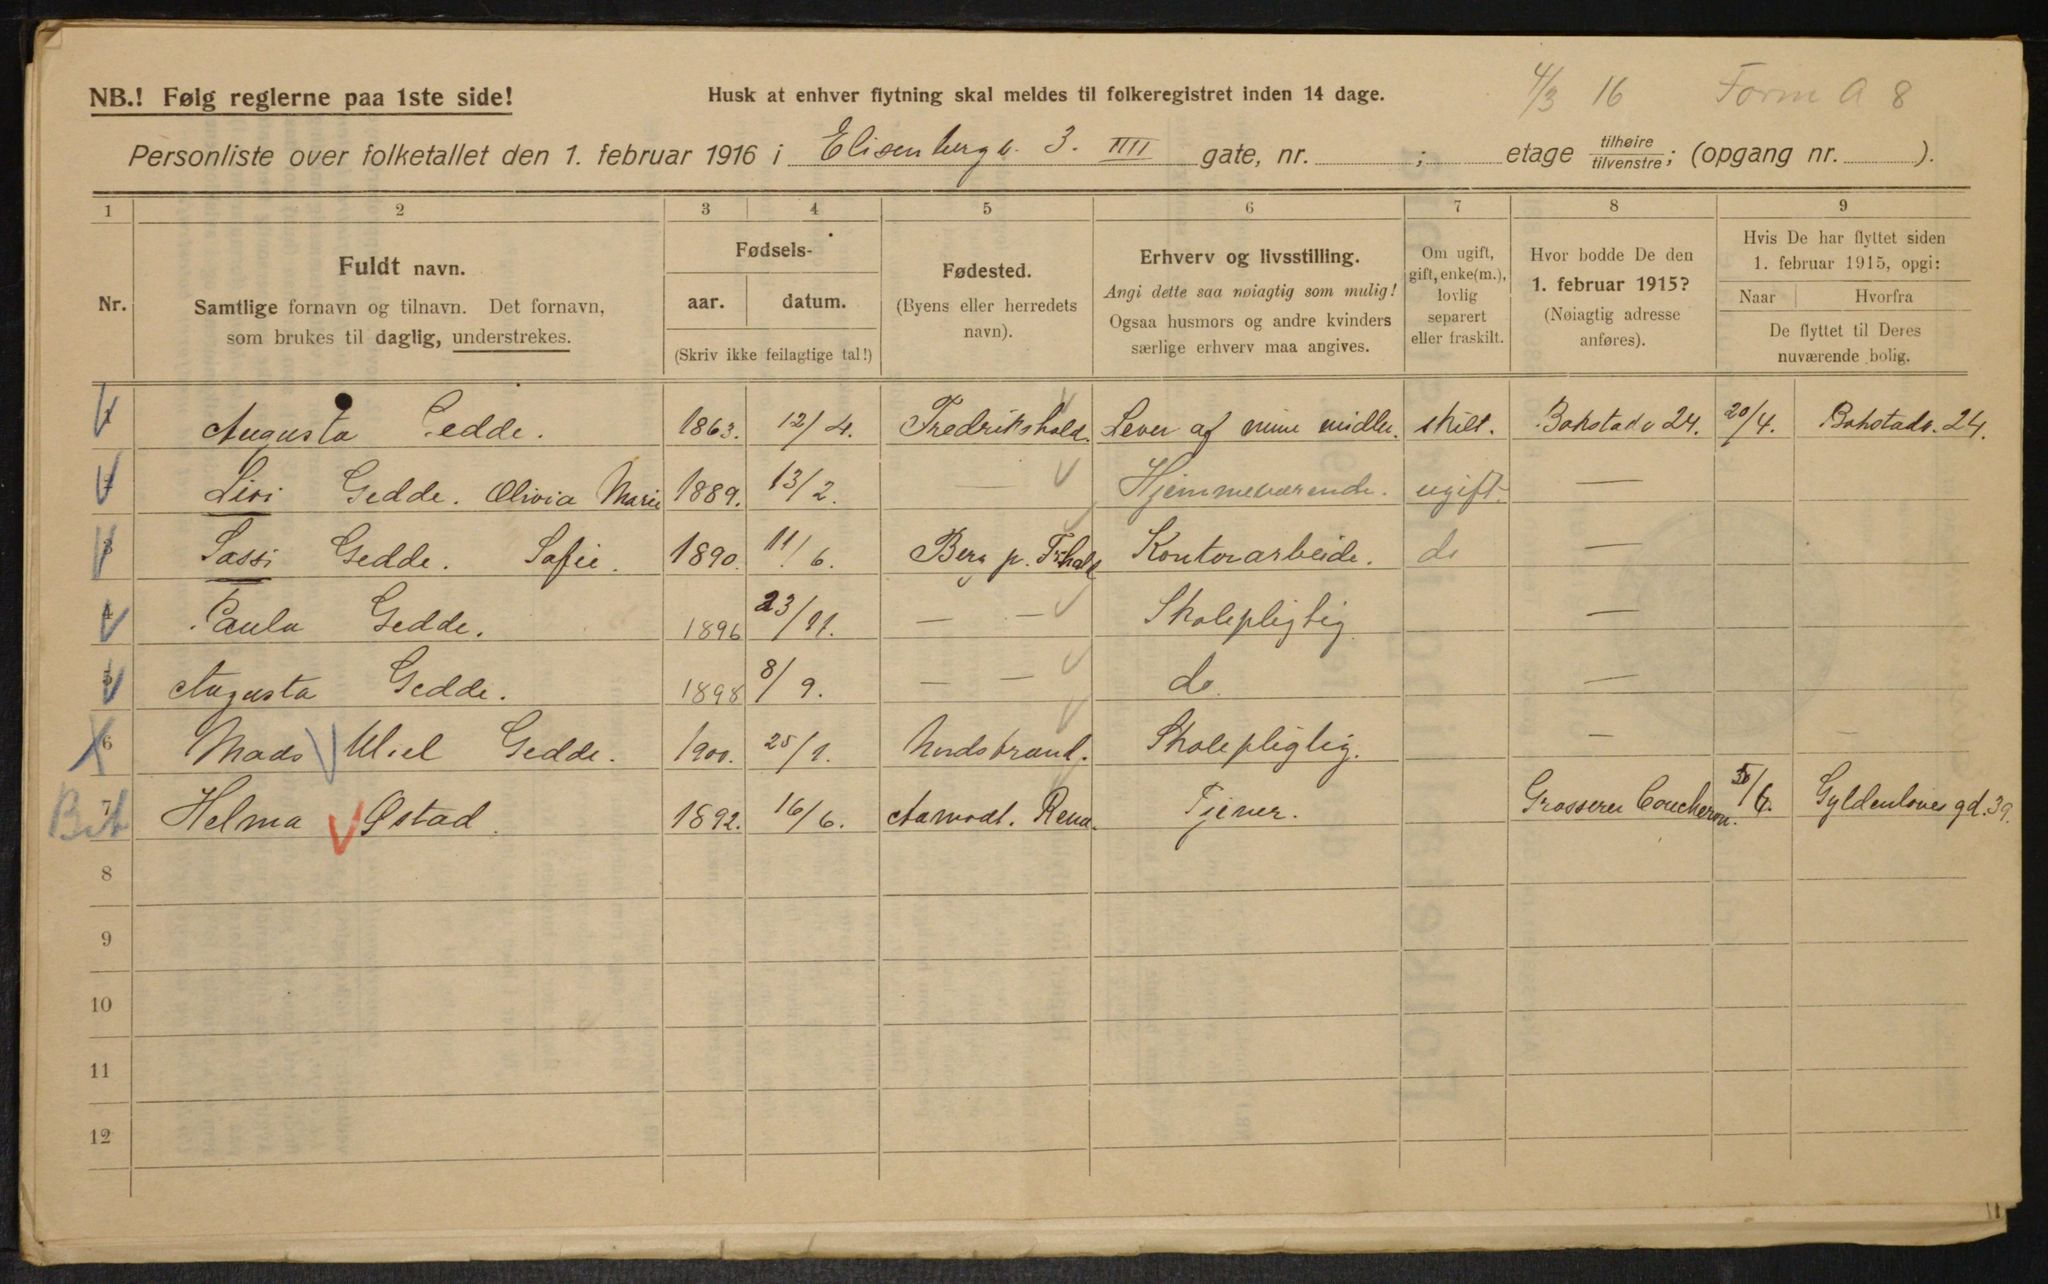 4/3 16 Form A 8
NB.! Følg reglerne paa 1ste side! Husk at enhver flytning skal meldes til folkeregistret inden 14 dage.
Personliste over folketallet den 1. februar 1916 i Elisenbergv. 3. IIII gate, nr. ; etage tilhøire/tilvenstre; (opgang nr. ).
1 2 3 4 5 6 7 8 9
Nr.
Fuldt navn.
Samtlige fornavn og tilnavn. Det fornavn,
som brukes til daglig, understrekes.
Fødsels-
aar. datum.
(Skriv ikke feilagtige tal!)
Fødested.
(Byens eller herredets
navn).
Erhverv og livsstilling.
Angi dette saa nøiagtig som mulig!
Ogsaa husmors og andre kvinders
særlige erhverv maa angives.
Om ugift,
gift, enke(m.),
lovlig
separert
eller fraskilt.
Hvor bodde De den
1. februar 1915?
(Nøiagtig adresse
anføres).
Hvis De har flyttet siden
1. februar 1915, opgi:
Naar Hvorfra
De flyttet til Deres
nuværende bolig.
1 Augusta Gedde. 1863. 12/4. Fredrikshald. Lever af mine midler. skilt. Bokstadv 24. 20/4. Bokstadv. 24.
Livi Gedde. Olivia Marie 1889. 13/2. — Hjemmeværende. ugift. —
3 Sassi Gedde. Sofie. 1890. 11/6. Berg p. Frhald Kontorarbeide. do —
4 Paula Gedde. 1896 23/11. — — Skolepligtig —
5 Augusta Gedde. 1898 8/9. — — do. —
6 Mads Gedde. 1900. 25/1. Skolepligtig. — —
Bet 7 Helma Østad. 1892. 16/6. Aamodt. Rena. Tjener. Grosserer Coucheron. 30/6. Gyldenløves gd. 39.
8
9
10
11
12